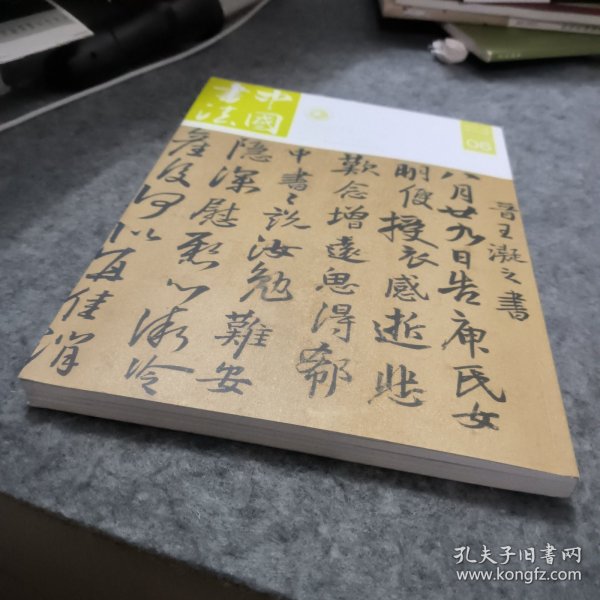 中國
書法
06
晋王凝之書
八月廿九日告庾氏女
明便授衣感逝悲
歎念增遠思得郗
中書〻說汝勉難安
隱深慰懸心冷
產後何似宜佳消
孔夫子旧書网
www.kongfz.com